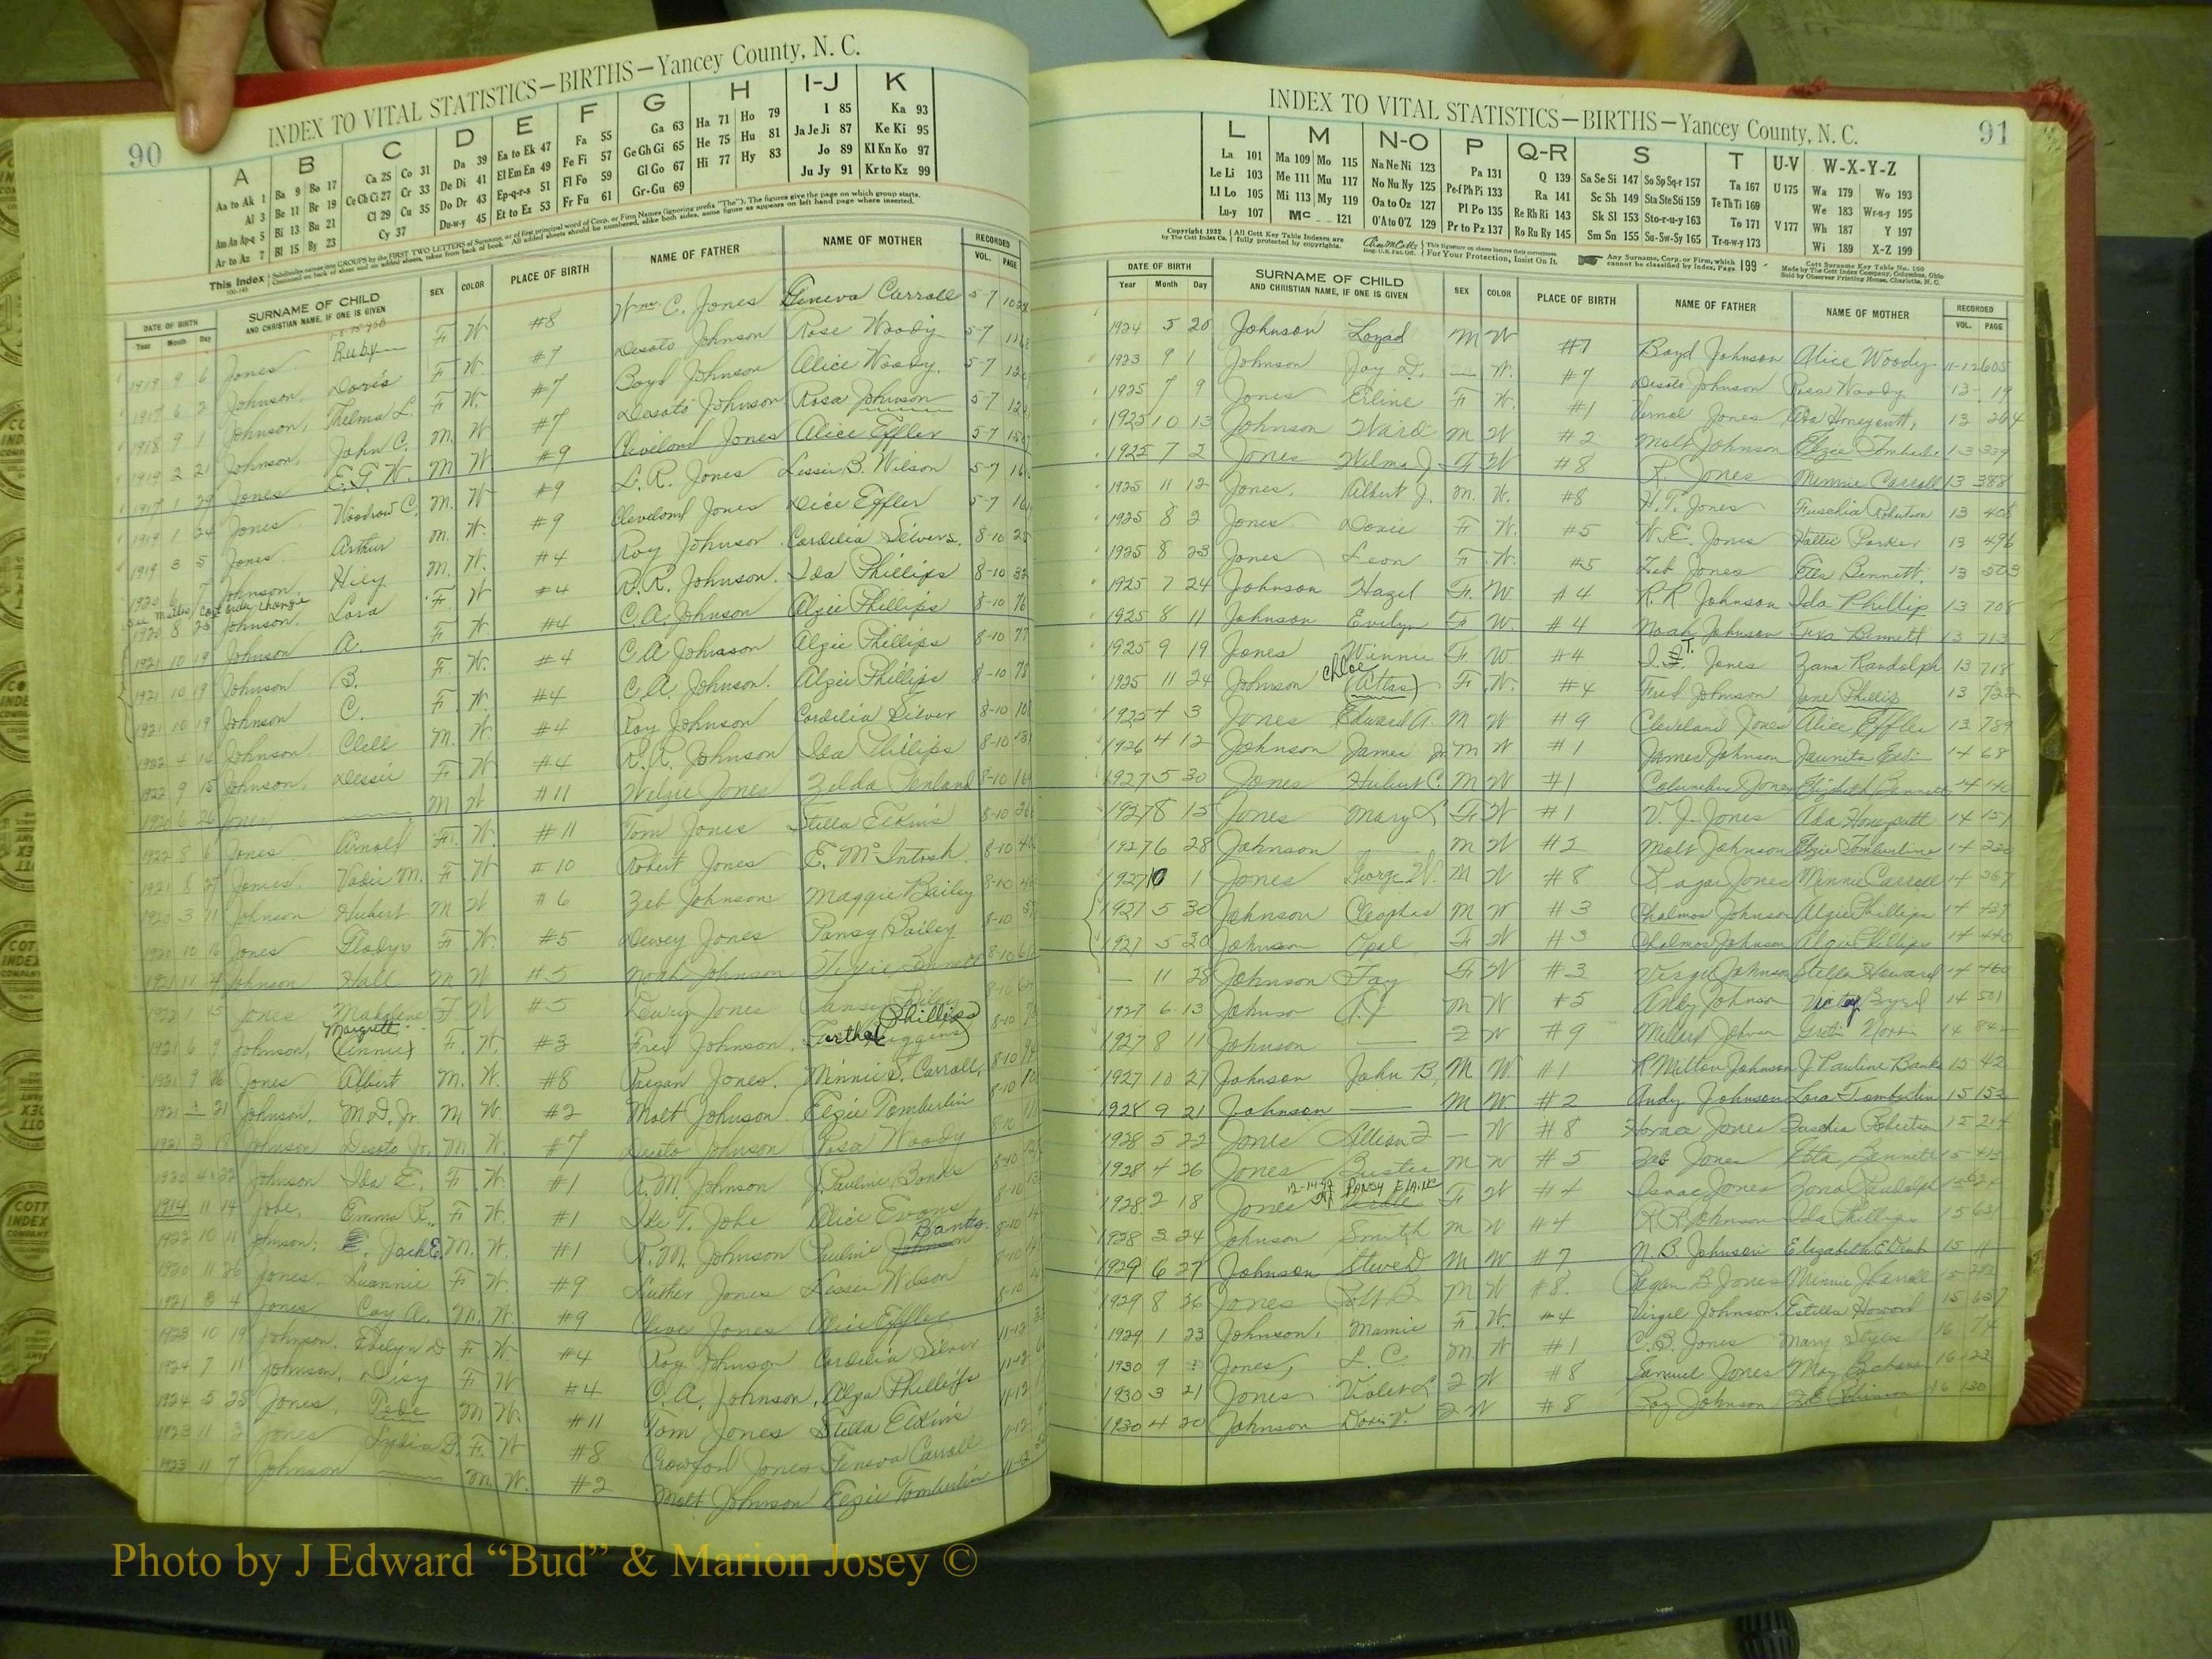 90
INDEX TO VITAL STATISTICS—BIRTHS—Yancey County, N. C.
A B C D E F G H I-J K
Aa to Ak 1 Ba 9 Bo 17 Ca 25 Co 31 Da 39 Ea to Ek 47 Fa 55 Ga 63 Ha 71 Ho 79 I 85 Ka 93
Al 3 Be 11 Br 19 Ce Ch Ci 27 Cr 33 De Di 41 El Em En 49 Fe Fi 57 Ge Gh Gi 65 He 75 Hu 81 Ja Je Ji 87 Ke Ki 95
Am An Ap-q 5 Bi 13 Bu 21 Cl 29 Cu 35 Do Dr 43 Ep-q-r-s 51 Fl Fo 59 Gl Go 67 Hi 77 Hy 83 Jo 89 Kl Kn Ko 97
Ar to Az 7 Bl 15 By 23 Cy 37 Du-w-y 45 Et to Ez 53 Fr Fu 61 Gr-Gu 69 Ju Jy 91 Kr to Kz 99
This Index
DATE OF BIRTH SURNAME OF CHILD SEX COLOR PLACE OF BIRTH NAME OF FATHER NAME OF MOTHER RECORDED
Year Month Day AND CHRISTIAN NAME, IF ONE IS GIVEN VOL. PAGE
1919 9 6 Jones Ruby F W #8 Wm C. Jones Geneva Carroll 5-7
1917 6 2 Johnson, Doris F W. #7 Desoto Johnson Rose Woody 5-7
1918 9 1 Johnson, Thelma L. F W. #7 Boyd Johnson Alice Woody. 5-7
1919 2 21 Johnson, John C. M. W #7 Desoto Johnson Rosa Johnson 5-7
1917 1 29 Jones E.F.W. M W. #9 Cleveland Jones Alice Effler 5-7
1919 1 24 Jones Woodrow C. M. W #9 L. R. Jones Lessie B. Wilson 5-7
1919 3 5 Jones Arthur M. W. #9 Cleveland Jones Dice Effler 5-7
1920 6 Johnson Hily M. W. #4 Roy Johnson Cordelia Silvers. 8-10
1920 8 25 Johnson. Lora F. W #4 R. R. Johnson. Ida Phillips 8-10
1921 10 19 Johnson A. F W #4 C. A. Johnson Algie Phillips 8-10 76
1921 10 19 Johnson B. F. W. #4 C A Johnson Algie Phillips 8-10 77
1921 10 19 Johnson C. F. W. #4 C. A. Johnson. Algie Phillips 8-10 78
1922 4 14 Johnson. Clell M. W. #4 Roy Johnson Cordelia Silver 8-10
1922 9 15 Johnson, Dessie F W #4 R. R. Johnson Ida Phillips 8-10
1920 6 26 Jones, M W #11 Welzie Jones Zelda Penland 8-10
1922 8 6 Jones Arnold F. W. #11 Tom Jones Stella Elkins 8-10
1921 8 27 Jones. Vadie M. F. W #10 Robert Jones E. McIntosh. 8-10
1920 3 11 Johnson Hubert M W #6 Zeb Johnson Maggie Bailey 8-10
1920 10 16 Jones Gladys F W. #5 Dewey Jones Pansy Bailey 8-10
1921 11 4 Johnson Hall M W #5 Noah Johnson 8-10
1922 1 15 Jones Madeline F W #5 Dewey Jones Pansy Bailey
1921 6 9 Johnson, Margrett (Annie) F. W. #3 Fred Johnson. Phillips
1921 9 16 Jones Albert M. W. #8 Reagan Jones. Minnie S. Carroll, 8-10
1921 21 Johnson. M.D. Jr. M W. #2 Molt Johnson Elzie Tomberlin 8-10
1921 3 18 Johnson Desoto Jr. M W. #7 Desoto Johnson Rosa Woody 8-10
1920 4 22 Johnson Ida E. F. W. #1 R.M. Johnson J. Pauline Banks 8-10
1914 11 14 Jobe, Emma R., F W. #1 Ike T. Jobe Alice Evans 8-10
1922 10 11 Johnson; Jack E. M. W. #1 R.M. Johnson Pauline Banks. 8-10
1920 11 26 Jones. Luannie F W. #9 Luther Jones Lessie Wilson 8-10
1921 3 4 Jones Coy A. M. W. #9 Cleve Jones Alice Effler
1923 10 19 Johnson. Evelyn D F W. #4 Roy Johnson Cordelia Silver 11-12
1924 7 11 Johnson, Disy F W #4 C. A. Johnson, Alga Phillips 11-12
1924 5 25 Jones, Pede M W. #11 Tom Jones Stella Elkins 11-12
1923 11 3 Jones Lydia B. F. W #8 Crawford Jones Geneva Carroll 11-12
1923 11 7 Johnson M. W. #2 Molt Johnson Elzie Tomberlin 11-12
INDEX TO VITAL STATISTICS—BIRTHS—Yancey County, N. C.
91
L M N-O P Q-R S T U-V W-X-Y-Z
La 101 Ma 109 Mo 115 Na Ne Ni 123 Pa 131 Q 139 Sa Se Si 147 So Sp Sq-r 157 Ta 167 U 175 Wa 179 Wo 193
Le Li 103 Me 111 Mu 117 No Nu Ny 125 Pe-f Ph Pi 133 Ra 141 Sc Sh 149 Sta Ste Sti 159 Te Th Ti 169 We 183 Wr-u-y 195
Ll Lo 105 Mi 113 My 119 Oa to Oz 127 Pl Po 135 Re Rh Ri 143 Sk Sl 153 Sto-r-u-y 163 To 171 V 177 Wh 187 Y 197
Lu-y 107 Mc 121 O'A to O'Z 129 Pr to Pz 137 Ro Ru Ry 145 Sm Sn 155 Su-Sw-Sy 165 Tr-u-w-y 173 Wi 189 X-Z 199
Copyright 1932 by The Cott Index Co. All Cott Key Table Indexes are fully protected by copyrights. This signature on sheets insures their correctness. For Your Protection, Insist On It. Any Surname, Corp. or Firm, which cannot be classified by Index, Page 199
Cott Surname Key Table No. 100
Made by The Cott Index Company, Columbus, Ohio
Sold by Observer Printing House, Charlotte, N. C.
DATE OF BIRTH SURNAME OF CHILD SEX COLOR PLACE OF BIRTH NAME OF FATHER NAME OF MOTHER RECORDED
Year Month Day AND CHRISTIAN NAME, IF ONE IS GIVEN VOL. PAGE
1924 5 20 Johnson Loyad M W #7 Boyd Johnson Alice Woody 11-12 605
1923 9 1 Johnson Joy D. — W. #7 Desoto Johnson Rosa Woody 13- 19
1925 7 9 Jones Erline F W. #1 Vernal Jones Ada Honeycutt, 13 264
1925 10 13 Johnson Ward M W #2 Molt Johnson Elzie Tomberlin 13 339
1925 7 2 Jones Wilma J. F W #8 R. Jones Minnie Carroll 13 388
1925 11 12 Jones. Albert J. M. W. #8 H.T. Jones Fuschia Robertson 13 408
1925 8 2 Jones Doxie F W. #5 W. E. Jones Hattie Parker 13 496
1925 8 23 Jones Leon F W. #5 Zeb Jones Etta Bennett. 13 503
1925 7 24 Johnson Hazel F. W. #4 R. R Johnson Ida Phillip 13 708
1925 8 11 Johnson Evelyn F W. #4 Noah Johnson Bennett 13 713
1925 9 19 Jones Winnie F. W. #4 I. T. Jones Zana Randolph 13 718
1925 11 24 Johnson Chloe (Atlas) F W. #4 Fred Johnson Jane Phillip 13
1925 4 3 Jones Edward A. M W #9 Cleveland Jones Alice Effler 13 789
1926 4 12 Johnson James Jr M W #1 James Johnson Jaunita 14 68
1927 5 30 Jones Hubert C. M W #1 Columbus Jones Elizabeth Bennett 14 140
1927 8 15 Jones Mary L F W #1 V. J. Jones Ada Honeycutt 14 151
1927 6 28 Johnson — M W #2 Molt Johnson Elzie Tomberline 14
1927 10 1 Jones George W. M W #8 Ragan Jones Minnie Carroll 14 267
1927 5 30 Johnson Cleophes M W #3 Chalmos Johnson Algie Phillips 14 439
1927 5 30 Johnson Opal F W #3 Chalmos Johnson Algie Phillips 14 440
— 11 28 Johnson Fay F W #3 Virgil Johnson Stella Howard 14 460
1927 6 13 Johnson A. J M W #5 Andy Johnson Byrd 14 501
1927 8 11 Johnson — F W #9 Millard Johnson Norris 14
1927 10 27 Johnson John B, M W. #1 R Milton Johnson J. Pauline Banks 15 42
1928 9 21 Johnson — M W. #2 Andy Johnson Lora Tomberlin 15 152
1928 5 22 Jones Lillian F — W #8 Horace Jones Robertson 15 214
1928 4 26 Jones Buster M W #5 Zeb Jones Etta Bennett 15 413
1928 2 18 Jones PANSY ELAINE F W #4 Isaac Jones Zona Randolph 15
1928 3 24 Johnson Smith M W #4 R R Johnson Ida Phillips 15
1929 6 27 Johnson Steve D M W #7 N. B. Johnson Elizabeth 15 11
1929 8 26 Jones B M W #8. Regan B Jones Minnie J Carroll 15
1929 1 23 Johnson, Mamie F. W. #4 Virgil Johnson. Estella Howard 15 637
1930 9 Jones, L. C. M. W #1 C. B. Jones Mary Styles 16 74
1930 3 21 Jones Violet L F W #8 Samuel Jones May 16 123
1930 4 20 Johnson Doris V. F W #8 Roy Johnson 16 130
Photo by J Edward “Bud” & Marion Josey ©